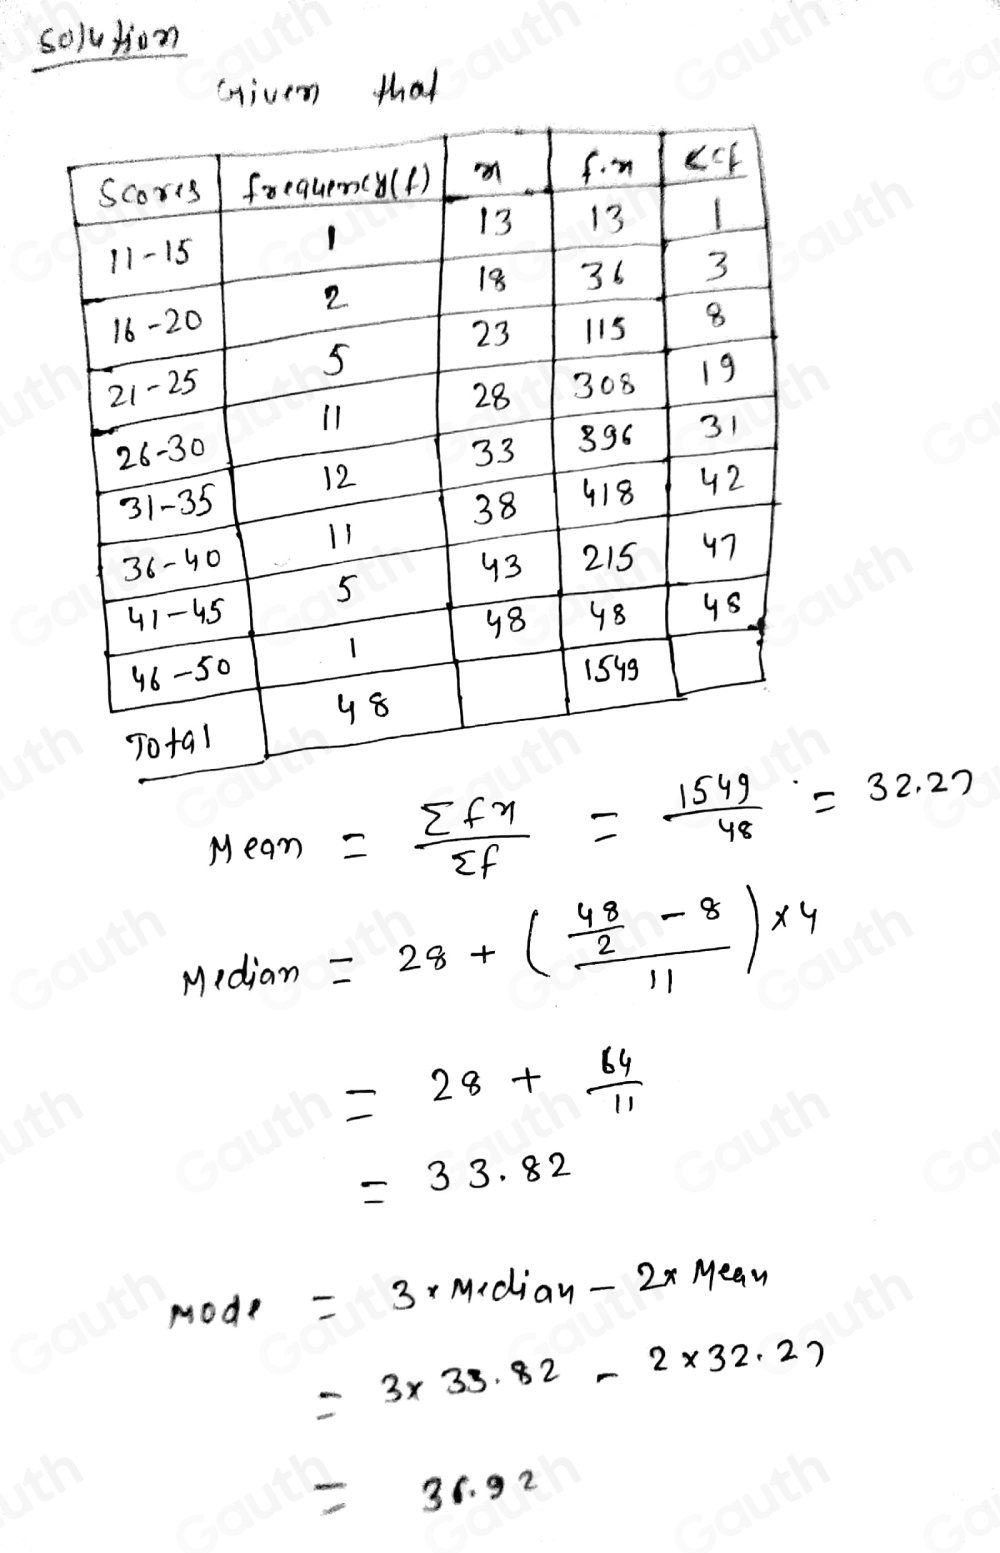 Solution
Given that
Scores frequency(f) x f.x <cf
11-15 1 13 13 1
16-20 2 18 36 3
21-25 5 23 115 8
26-30 11 28 308 19
31-35 12 33 396 31
36-40 11 38 418 42
41-45 5 43 215 47
46-50 1 48 48 48
Total 48 1549
Mean = Σfx/Σf = 1549/48 = 32.27
Median = 28 + ((48/2 - 8)/11) × 4
= 28 + 64/11
= 33.82
Mode = 3 × Median - 2 × Mean
= 3 × 33.82 - 2 × 32.27
= 36.92